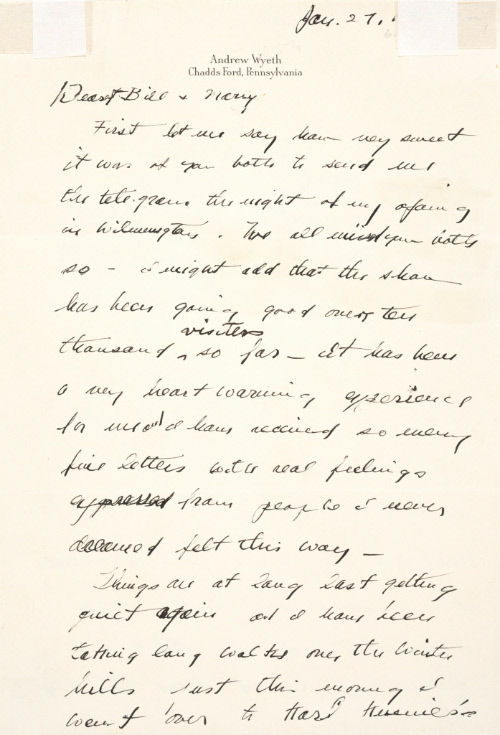 Jan. 27,
Andrew Wyeth
Chadds Ford, Pennsylvania
Dearest Bill & Mary
First let me say how very sweet
it was of you both to send me
the telegram the night of my opening
in Wilmington. We all miss you both
so – I might add that the show
has been going good over ten
visiters
thousand, so far – it has been
a very heart warming experience
for me and I have received so many
fine letters with real feelings
expressed from people I never
dreamed felt this way –
Things are at long last getting
quiet again and I have been
taking long walks over the winter
hills just this morning I
went over to